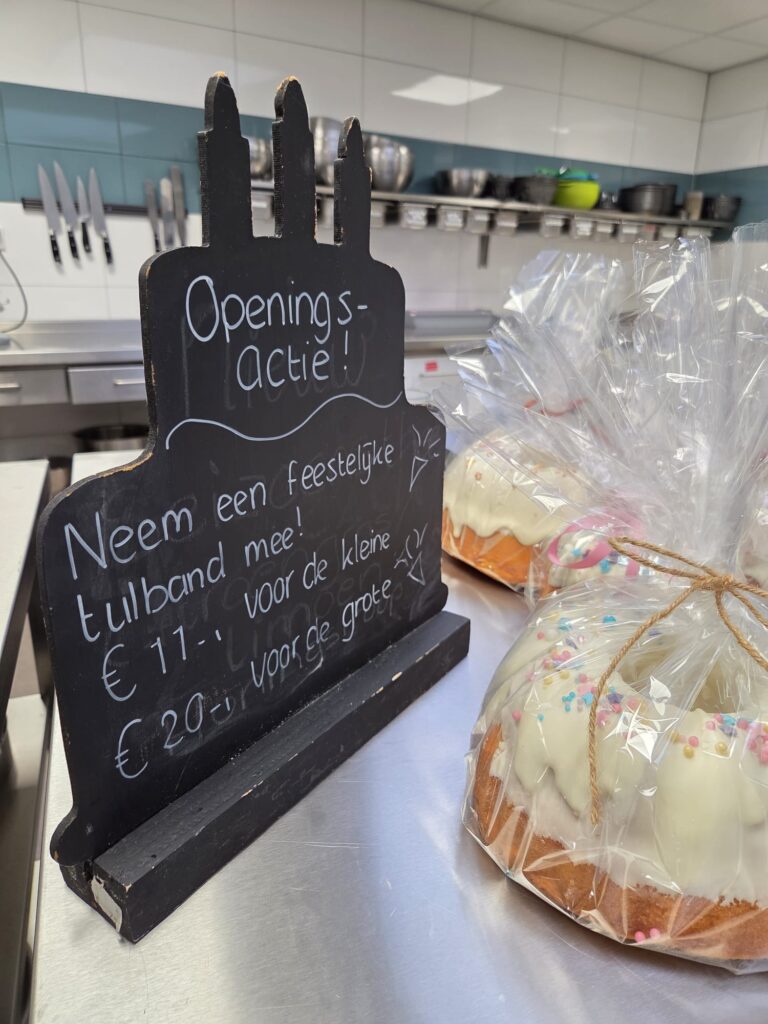 Openings-
actie!
Neem een feestelijke
tulband mee!
€ 11-, voor de kleine
€ 20-, voor de grote